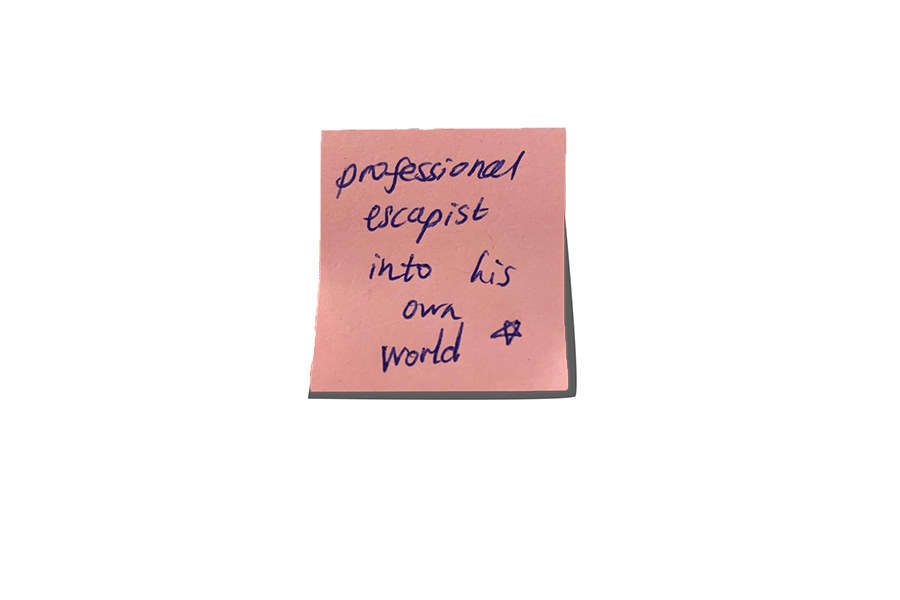 professional
escapist
into his
own
world ☆